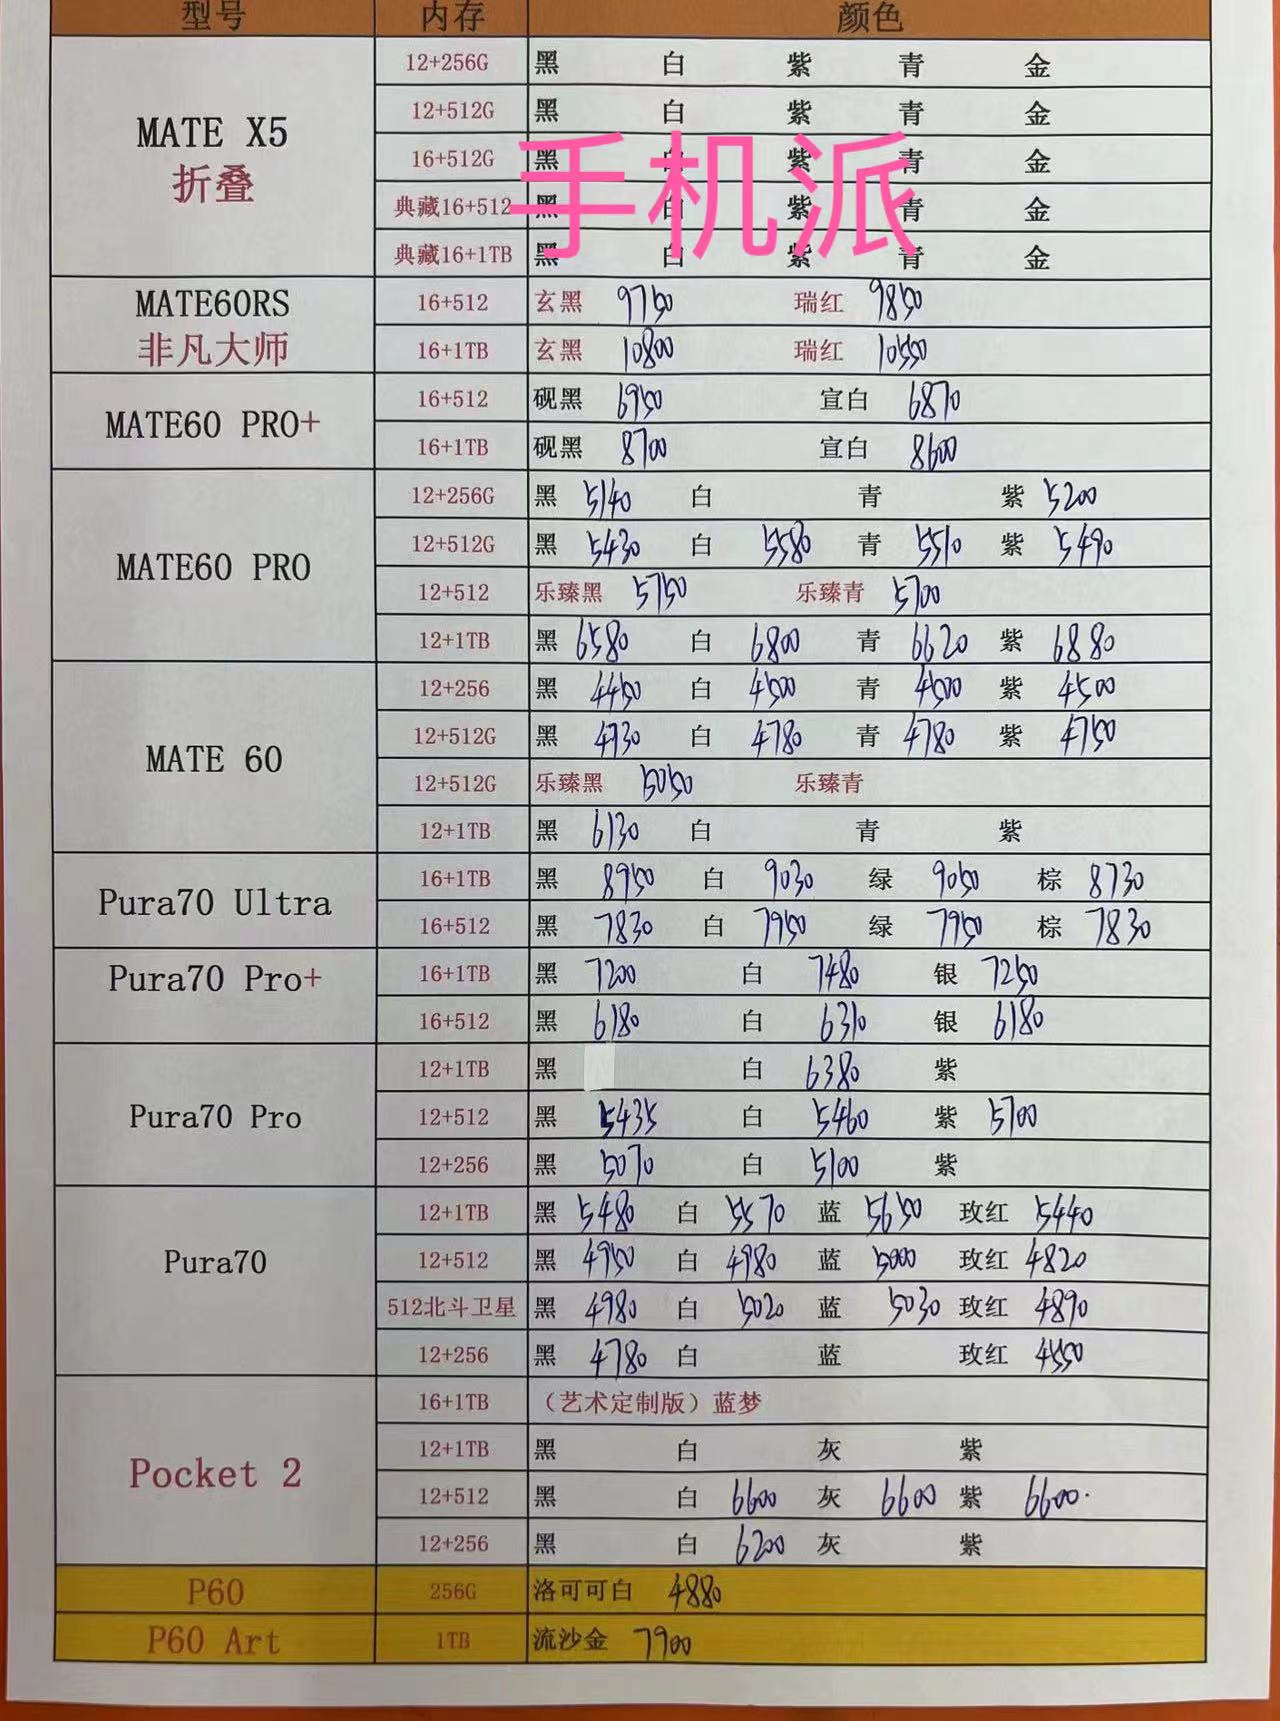 型号 内存 颜色
MATE X5 折叠
12+256G 黑 白 紫 青 金
12+512G 黑 白 紫 青 金
16+512G 黑 白 紫 青 金
典藏16+512 黑 白 紫 青 金
典藏16+1TB 黑 白 紫 青 金
手机派
MATE60RS 非凡大师
16+512 玄黑 9750 瑞红 9850
16+1TB 玄黑 10800 瑞红 10550
MATE60 PRO+
16+512 砚黑 6950 宣白 6870
16+1TB 砚黑 8700 宣白 8600
MATE60 PRO
12+256G 黑 5140 白 青 紫 5200
12+512G 黑 5430 白 5580 青 5510 紫 5490
12+512 乐臻黑 5750 乐臻青 5700
12+1TB 黑 6580 白 6800 青 6620 紫 6880
MATE 60
12+256 黑 4450 白 4500 青 4500 紫 4500
12+512G 黑 4730 白 4780 青 4780 紫 4750
12+512G 乐臻黑 5050 乐臻青
12+1TB 黑 6130 白 青 紫
Pura70 Ultra
16+1TB 黑 8950 白 9030 绿 9050 棕 8730
16+512 黑 7830 白 7950 绿 7950 棕 7830
Pura70 Pro+
16+1TB 黑 7200 白 7480 银 7250
16+512 黑 6180 白 6310 银 6180
Pura70 Pro
12+1TB 黑 白 6380 紫
12+512 黑 5435 白 5460 紫 5700
12+256 黑 5070 白 5100 紫
Pura70
12+1TB 黑 5480 白 5570 蓝 5650 玫红 5440
12+512 黑 4950 白 4980 蓝 5000 玫红 4820
512北斗卫星 黑 4980 白 5020 蓝 5030 玫红 4890
12+256 黑 4780 白 蓝 玫红 4550
Pocket 2
16+1TB （艺术定制版）蓝梦
12+1TB 黑 白 灰 紫
12+512 黑 白 6600 灰 6600 紫 6600.
12+256 黑 白 6200 灰 紫
P60 256G 洛可可白 4880
P60 Art 1TB 流沙金 7900